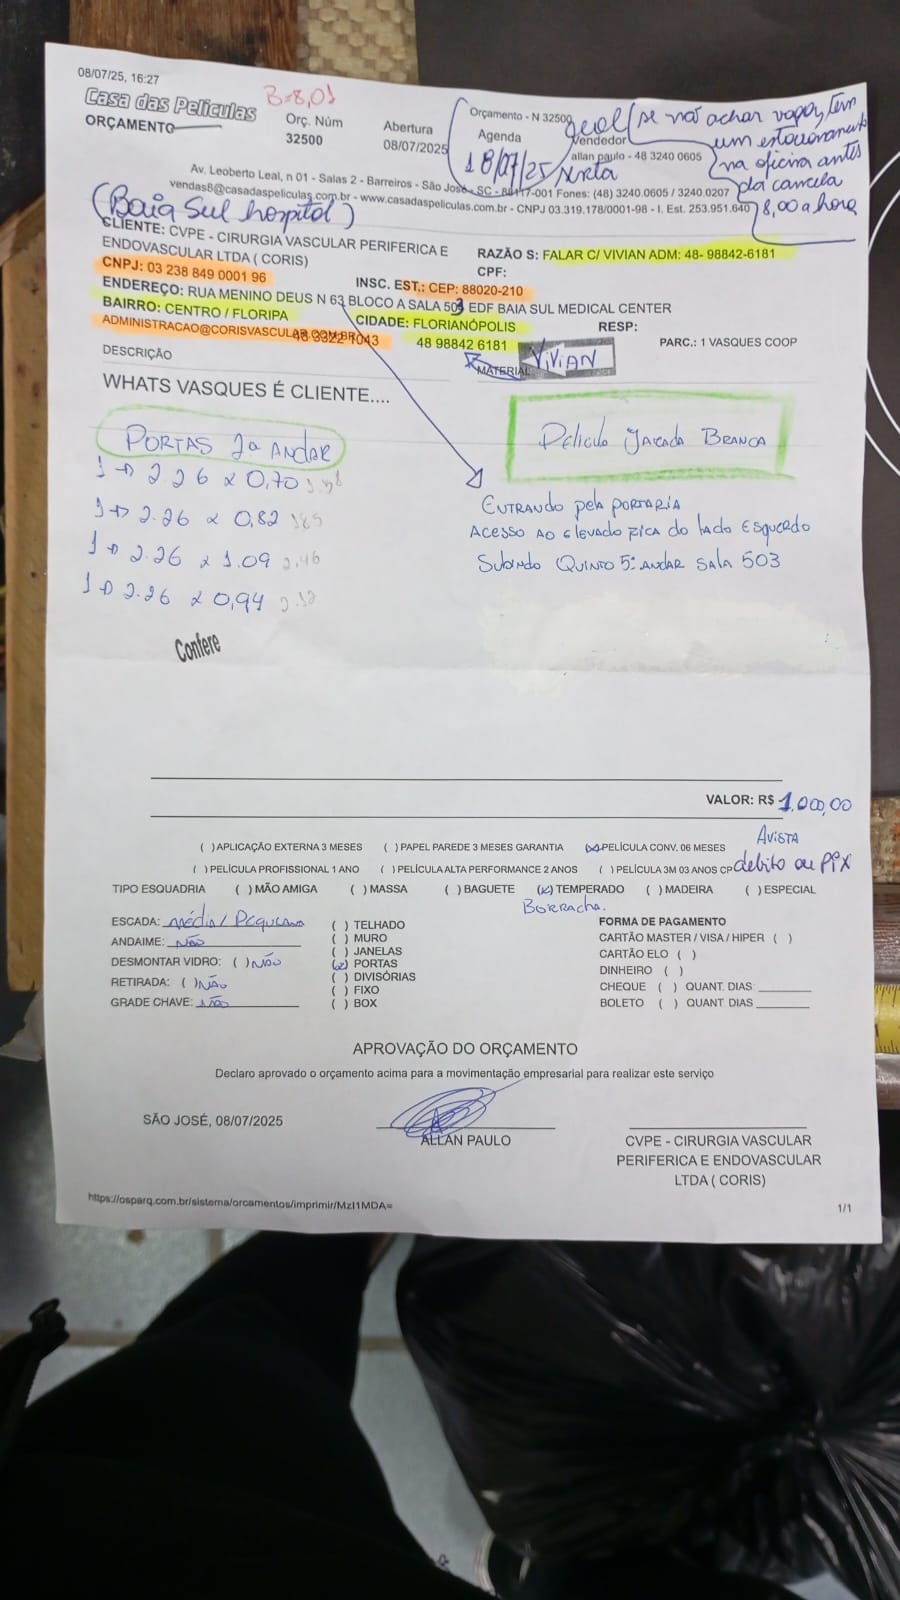 08/07/25, 16:27
Casa das Películas
B=8,01
ORÇAMENTO
Orç. Núm
32500
Abertura
08/07/2025
Orçamento - N 32500
Agenda
18/07/25 sexta
Vendedor
allan paulo - 48 3240 0605
(se não achar vaga, tem
um estacionamento
na oficina antes
da cancela
8,00 a hora
Av. Leoberto Leal, n 01 - Salas 2 - Barreiros - São José - SC - 88117-001 Fones: (48) 3240.0605 / 3240.0207
vendas8@casadaspeliculas.com.br - www.casadaspeliculas.com.br - CNPJ 03.319.178/0001-98 - I. Est. 253.951.640
(Baia Sul hospital)
CLIENTE: CVPE - CIRURGIA VASCULAR PERIFERICA E
ENDOVASCULAR LTDA ( CORIS)
RAZÃO S: FALAR C/ VIVIAN ADM: 48- 98842-6181
CNPJ: 03 238 849 0001 96
CPF:
INSC. EST.: CEP: 88020-210
ENDEREÇO: RUA MENINO DEUS N 63 BLOCO A SALA 503 EDF BAIA SUL MEDICAL CENTER
BAIRRO: CENTRO / FLORIPA
CIDADE: FLORIANÓPOLIS
RESP:
ADMINISTRACAO@CORISVASCULAR.COM.BR
48 3322 1043
48 98842 6181
PARC.: 1 VASQUES COOP
DESCRIÇÃO
MATERIAL
VIVIAN
WHATS VASQUES É CLIENTE....
PORTAS 2ª ANDAR
Película Jateada BRANCA
1 → 2.26 x 0,70 1.58
1 → 2.26 x 0,82 185
1 → 2.26 x 1.09 2,46
1 → 2.26 x 0,94 2.12
ENTRANDO pela PORTARIA
Acesso AO Elevado fica do lado EsquErdo
Subindo QUINTO 5º ANDAR SALA 503
Confere
VALOR: R$ 1.000,00
AVISTA
debito ou PIX
( ) APLICAÇÃO EXTERNA 3 MESES ( ) PAPEL PAREDE 3 MESES GARANTIA (x) PELÍCULA CONV. 06 MESES
( ) PELÍCULA PROFISSIONAL 1 ANO ( ) PELÍCULA ALTA PERFORMANCE 2 ANOS ( ) PELÍCULA 3M 03 ANOS CP
TIPO ESQUADRIA ( ) MÃO AMIGA ( ) MASSA ( ) BAGUETE (x) TEMPERADO ( ) MADEIRA ( ) ESPECIAL
Borracha.
ESCADA: média / Pequena
ANDAIME: NÃO
DESMONTAR VIDRO: ( ) NÃO
RETIRADA: ( ) NÃO
GRADE CHAVE: NÃO
( ) TELHADO
( ) MURO
( ) JANELAS
(x) PORTAS
( ) DIVISÓRIAS
( ) FIXO
( ) BOX
FORMA DE PAGAMENTO
CARTÃO MASTER / VISA / HIPER ( )
CARTÃO ELO ( )
DINHEIRO ( )
CHEQUE ( ) QUANT. DIAS:
BOLETO ( ) QUANT. DIAS
APROVAÇÃO DO ORÇAMENTO
Declaro aprovado o orçamento acima para a movimentação empresarial para realizar este serviço
SÃO JOSÉ, 08/07/2025
ALLAN PAULO
CVPE - CIRURGIA VASCULAR
PERIFERICA E ENDOVASCULAR
LTDA ( CORIS)
https://osparq.com.br/sistema/orcamentos/imprimir/MzI1MDA=
1/1